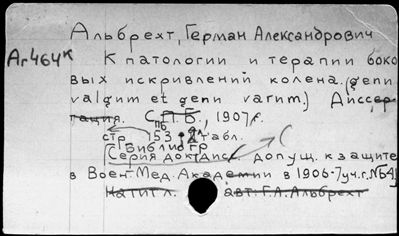 Альбрехт, Герман Александрович
Аг464к
К патологии и терапии боко
вых искривлений колена. (geni
valgum et geni varum.) Диссер
тация. С.П.Б., 1907 г.
стр. 153 табл.
библиогр
(Серия докт. дисс. допущ. к защите
в Воен. Мед. Академии в 1906-7 уч. г. №64)
авт: Г.А. Альбрехт